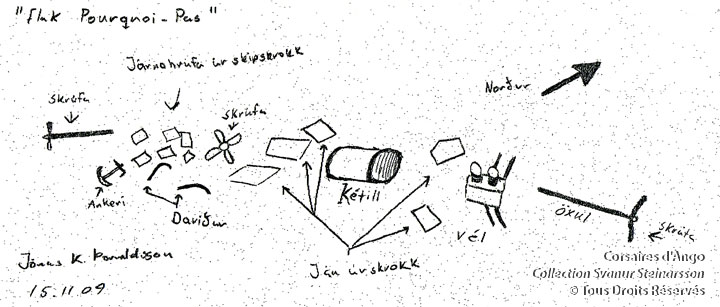 "flak Pourquoi-Pas"
Járnahrúfa úr skipskrokk
Norður
Skrúfa
Skrúfa
Ankeri
Davíður
Kétill
Vél
öxul
Skrúfa
Jónas K. Donaldsson
Ján úr skrokk
15.11.09
Corsaires d'Ango
Collection Svanur Steinarsson
© Tous Droits Réservés